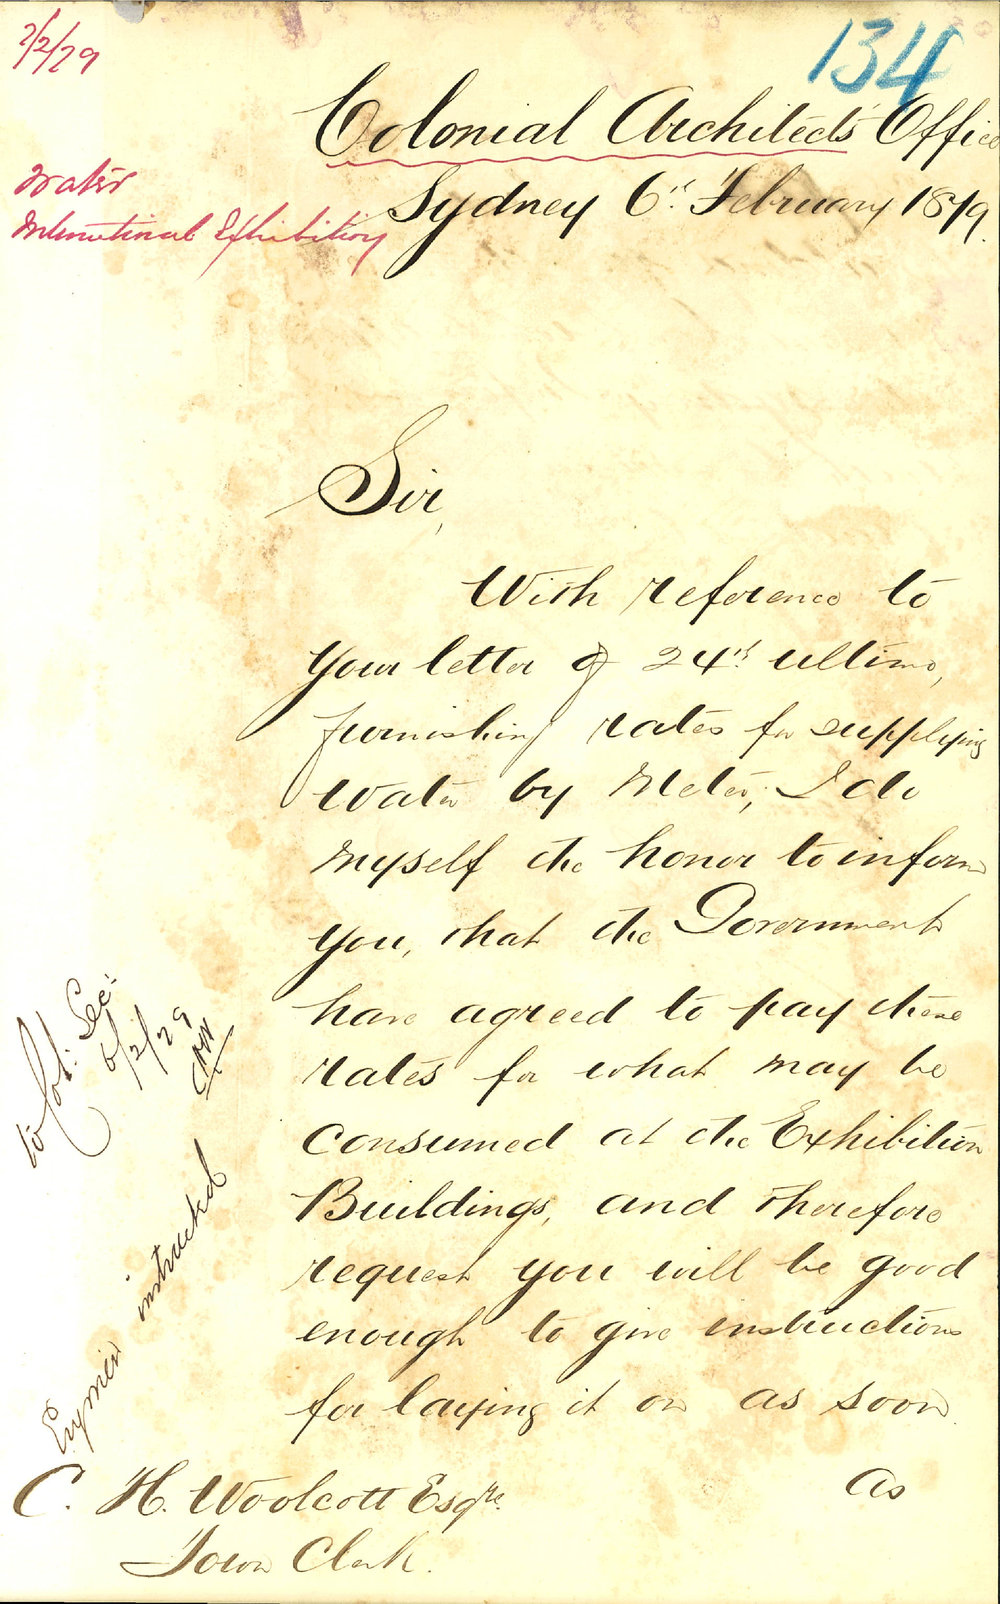 7/2/79
134
Colonial Architects' Office
Sydney 6th February 1879.
Water
International Exhibition
Sir,
With reference to
your letter of 24th ultimo,
furnishing rates for supplying
water by Meter, I do
myself the honor to inform
you, that the Government
have agreed to pay these
rates for what may be
consumed at the Exhibition
Buildings, and therefore
request you will be good
enough to give instructions
for laying it on as soon
as
to Col: Sec:
6/2/79
CHW
Engineer instructed
C. H. Woolcott Esqre.
Town Clerk.